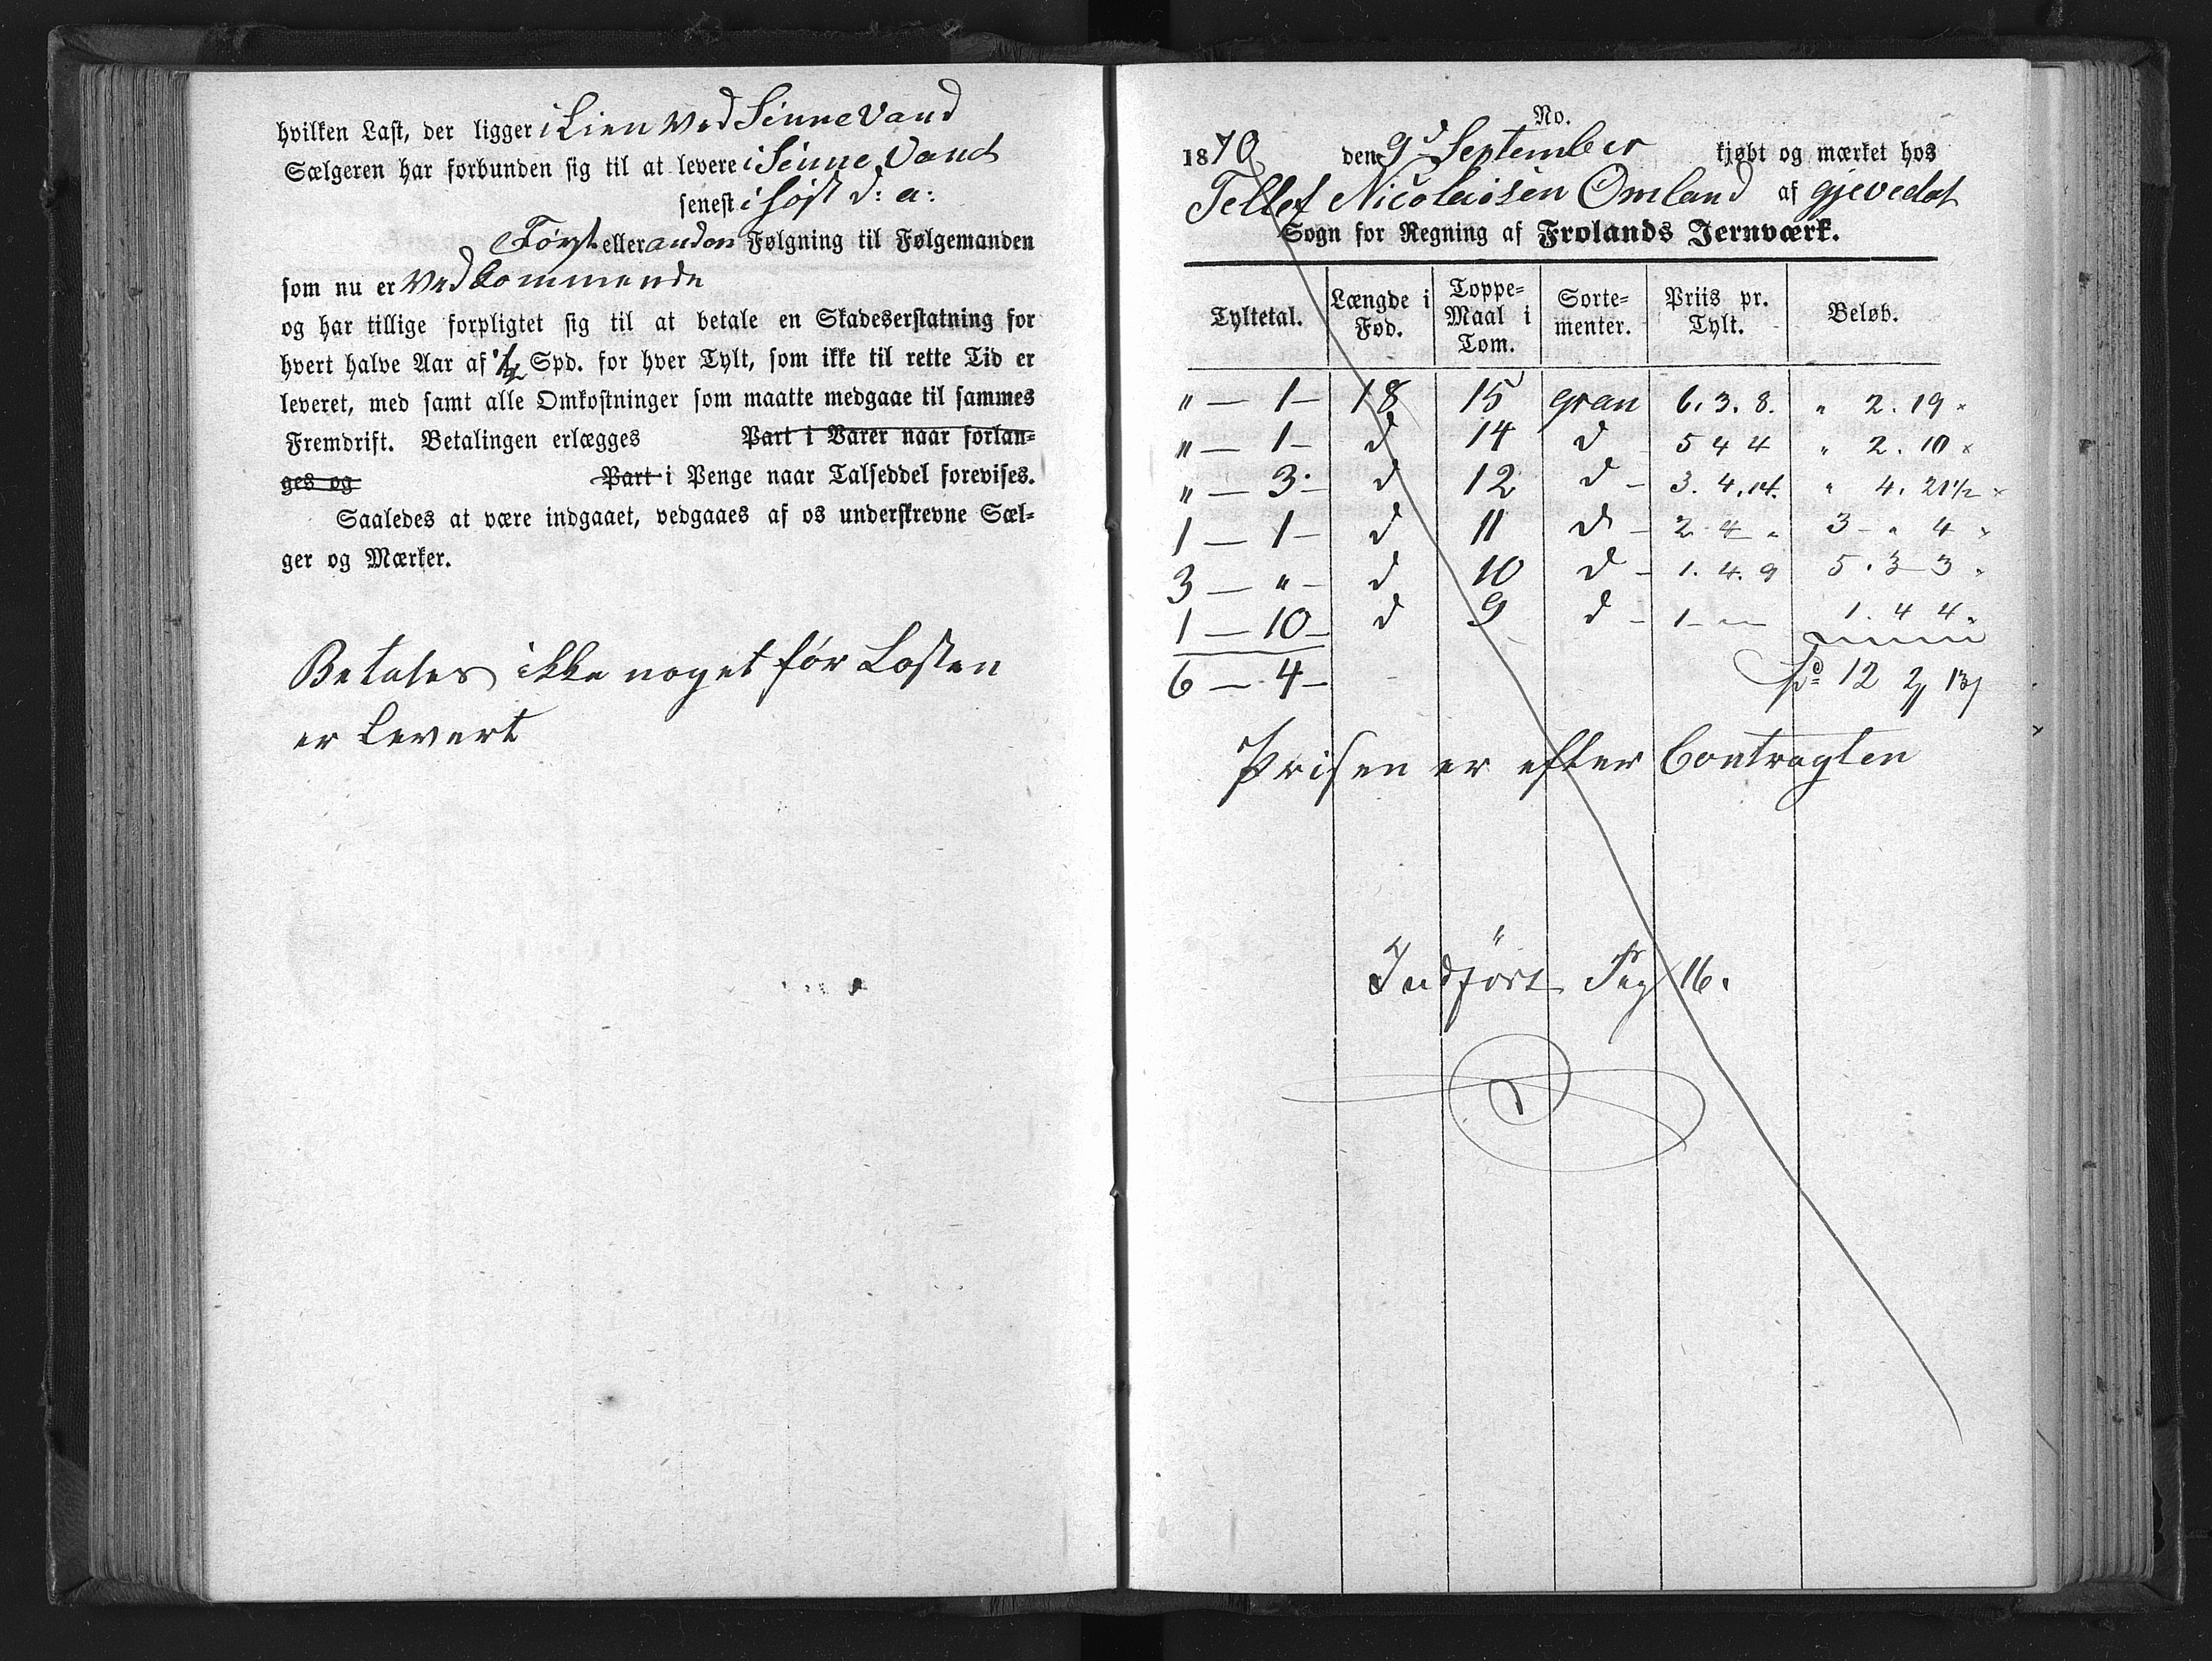 hvilken Last, der ligger i Lien ved Sinne Vand
Sælgeren har forbunden sig til at levere i Sinne Vand
senest i høst d: a:
Først eller anden Følgning til Følgemanden
som nu er Vedkommende
og har tillige forpligtet sig til at betale en Skadeserstatning for
hvert halve Aar af 1/2 Spd. for hver Tylt, som ikke til rette Tid er
leveret, med samt alle Omkostninger som maatte medgaae til sammes
Fremdrift. Betalingen erlægges Part i Varer naar forlan-
ges og Part i Penge naar Talseddel forevises.
Saaledes at være indgaaet, vedgaaes af os underskrevne Sæl-
ger og Mærker.
Betales ikke noget før Lasten
er Levert
No.
1870 den 9d September kjøbt og mærket hos
Tellef Nicolaisen Omland af gjevedal
Sogn for Regning af Frolands Jernværk.
Tyltetal. Længde i Fod. Toppe-Maal i Tom. Sorte-menter. Priis pr. Tylt. Beløb.
" — 1 — 18 15 gran 6. 3. 8. " 2. 19
" — 1 — d 14 d 5 4 4 " 2. 10
" — 3 — d 12 d - 3. 4. 14. " 4. 21 1/2
1 — 1 — d 11 d - 2 4 " 3 - " 4
3 — " — d 10 d - 1. 4. 9 5. 3 3
1 — 10 — d 9 d - 1 - " 1. 4 4
6 — 4 — Spd 12 2
Prisen er efter Contragten
Indført Pag 16.